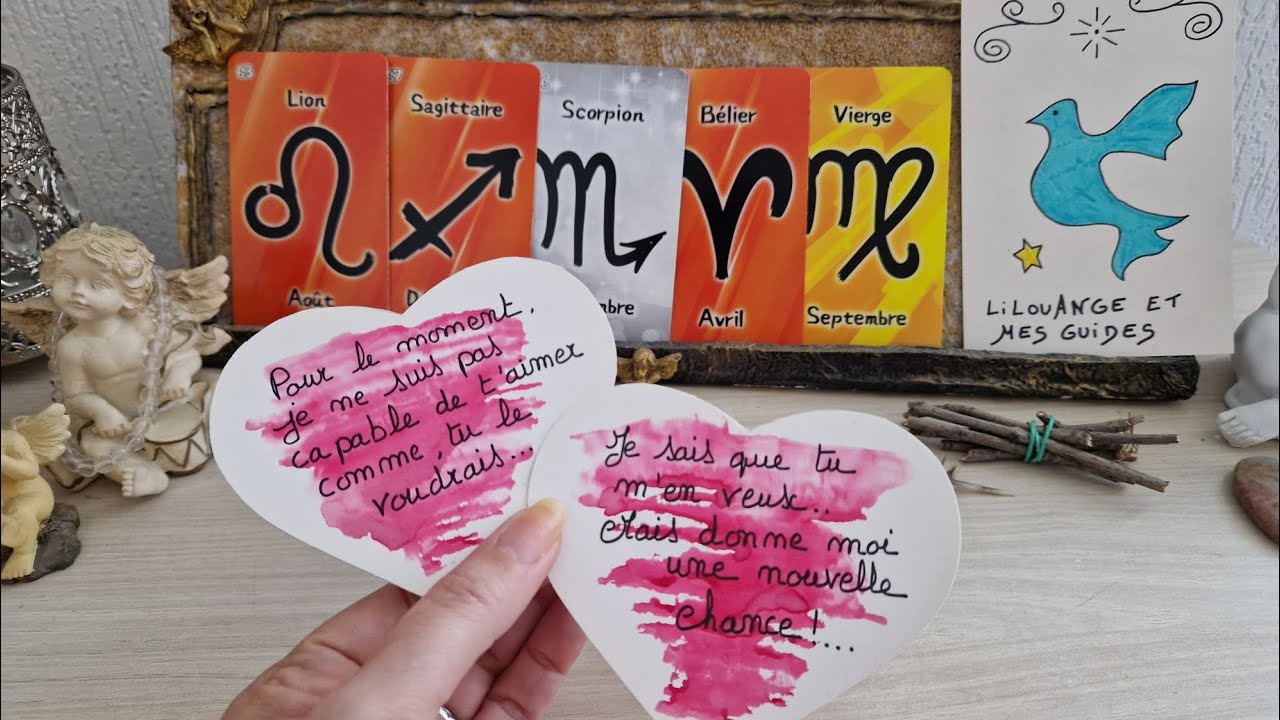 Lion
Août
Sagittaire
Scorpion
Bélier
Avril
Vierge
Septembre
LiLOUANGE ET
MES GUIDES
Pour le moment,
je ne suis pas
capable de t'aimer
comme, tu le
voudrais...
Je sais que tu
m'en veux..
Mais donne moi
une nouvelle
chance!....